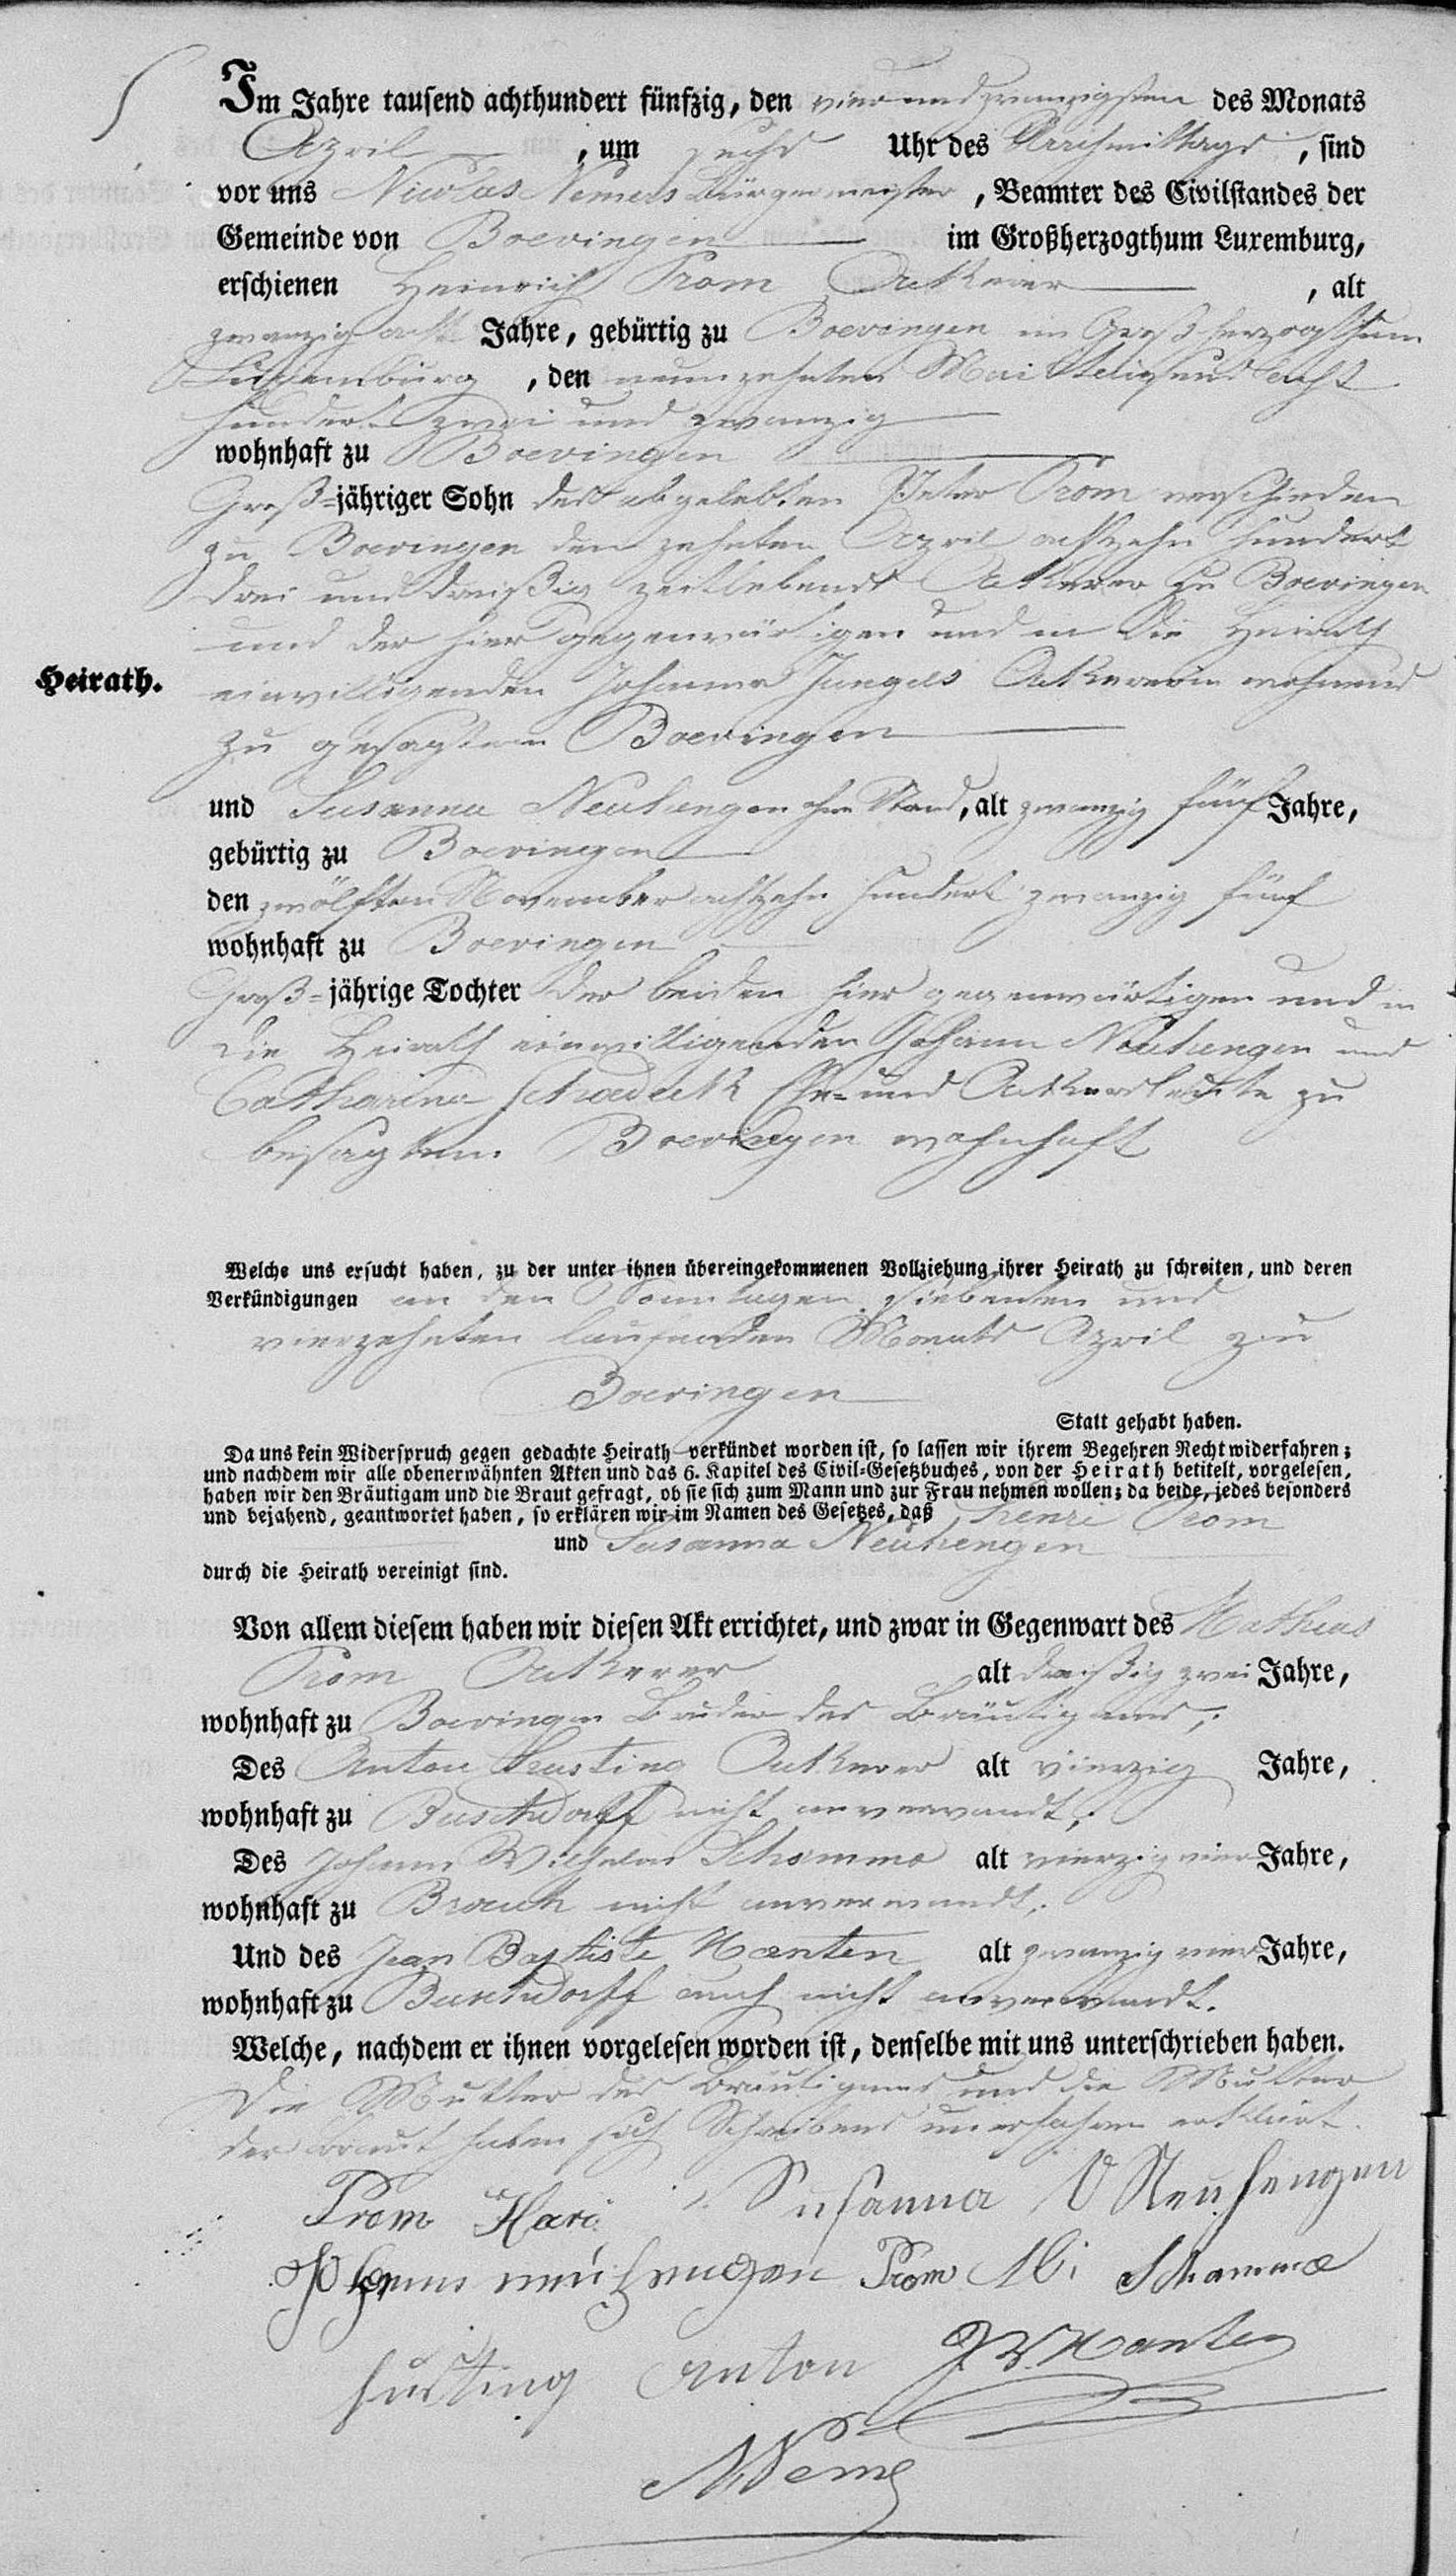 Im Jahre tausend achthundert fünfzig, den vier und zwanzigsten des Monats
April, um sechs Uhr des Nachmittags, sind
vor uns Nicolas Nemers Bürgermeister, Beamter des Civilstandes der
Gemeinde von Boevingen im Großherzogthum Luxemburg,
erschienen Heinrich Prom Ackerer, alt
zwanzig acht Jahre, gebürtig zu Boevingen im Großherzogthum
Luxemburg, den neunzehnten Mai tausend acht
hundert zwei und zwanzig
wohnhaft zu Boevingen
Groß-jähriger Sohn des abgelebten Peter Prom verschieden
zu Boevingen den zehnten April achtzehn hundert
drei und dreißig zeitlebends Ackerer zu Boevingen
und der hier gegenwärtigen und in die Heirath
Heirath.
einwilligenden Johanna Jungels Ackererin wohnend
zu gesagtem Boevingen
und Susanna Neuhengen ohne Stand, alt zwanzig fünf Jahre,
gebürtig zu Boevingen
den zwölften November achtzehn hundert zwanzig fünf
wohnhaft zu Boevingen
Groß-jährige Tochter der beiden hier gegenwärtigen und in
die Heirath einwilligenden Johann Neuhengen und
Catharina Schadeck Ehe- und Ackersleute zu
besagtem Boevingen wohnhaft
Welche uns ersucht haben, zu der unter ihnen übereingekommenen Vollziehung ihrer Heirath zu schreiten, und deren
Verkündigungen an den Sonntagen siebenten und
vierzehnten laufenden Monats April zu
Boevingen
Statt gehabt haben.
Da uns kein Widerspruch gegen gedachte Heirath verkündet worden ist, so lassen wir ihrem Begehren Recht widerfahren;
und nachdem wir alle obenerwähnten Akten und das 6. Kapitel des Civil-Gesetzbuches, von der Heirath betitelt, vorgelesen,
haben wir den Bräutigam und die Braut gefragt, ob sie sich zum Mann und zur Frau nehmen wollen; da beide, jedes besonders
und bejahend, geantwortet haben, so erklären wir im Namen des Gesetzes, daß Henri Prom
und Susanna Neuhengen
durch die Heirath vereinigt sind.
Von allem diesem haben wir diesen Akt errichtet, und zwar in Gegenwart des Mathias
Prom Ackerer alt dreißig zwei Jahre,
wohnhaft zu Boevingen Bruder des Bräutigams;
Des Anton Husting Ackerer alt vierzig Jahre,
wohnhaft zu Buschdorff nicht anverwandt;
Des Johann Wilhelm Schamme alt vierzig vier Jahre,
wohnhaft zu Brouch nicht anverwandt;
Und des Jean Baptiste Manten alt zwanzig vier Jahre,
wohnhaft zu Buschdorff auch nicht anverwandt.
Welche, nachdem er ihnen vorgelesen worden ist, denselbe mit uns unterschrieben haben.
Die Mutter des Bräutigams und die Mutter
der Braut haben sich Schreibens unerfahren erklärt.
Prom Hari Susanna Neuhengen
Johann neuhengen Prom Mi Schamme
husting anton JB Manten
NNemers